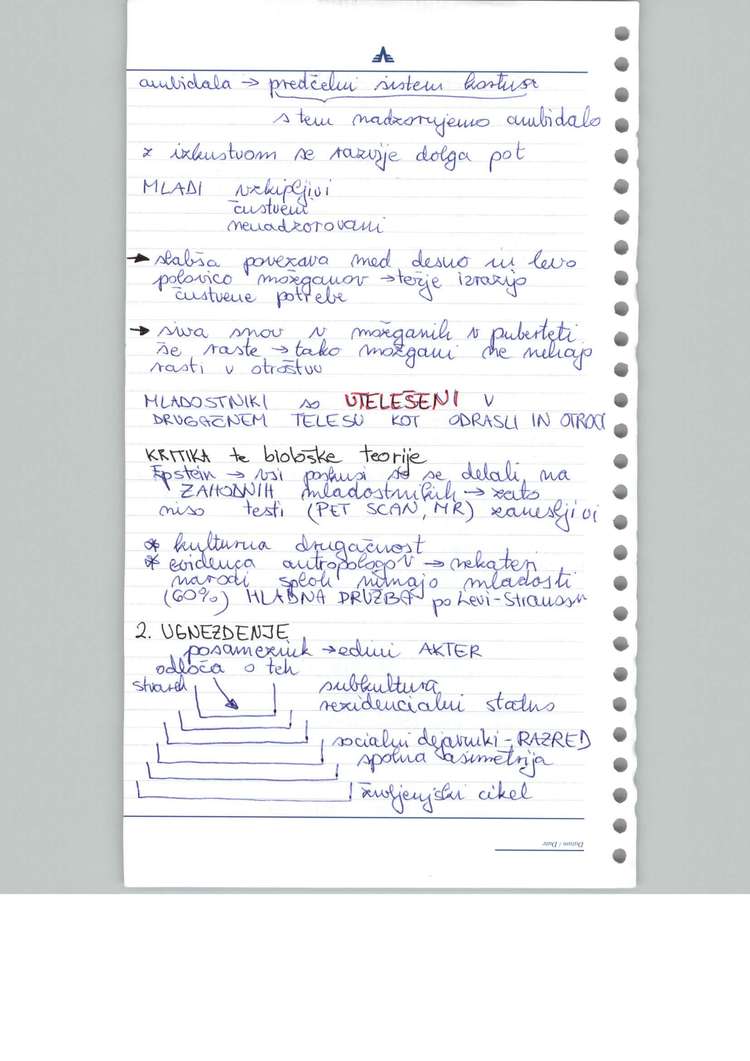 ambidala → predčelni sistem kortusa
s tem nadzorujemo ambidalo
z izkustvom se razvije dolga pot
MLADI vzkipljivi
čustveni
nenadzorovani
→ slabša povezava med desno in levo
polovico možganov → težje izrazijo
čustvene potrebe
→ siva snov v možganih v puberteti
še raste → tako možgani ne nehajo
rasti v otroštvu
MLADOSTNIKI so UTELEŠENI v
DRUGAČNEM TELESU KOT ODRASLI IN OTROCI
KRITIKA te biološke teorije
Epstein → vsi poskusi so se delali na
ZAHODNIH mladostnikih → zato
niso testi (PET SCAN, MR) zanesljivi
* kulturna drugačnost
* evidenca antropologov → nekateri
narodi sploh nimajo mladosti
(60%) HLADNA DRUŽBA po Levi-Straussu
2. UGNEZDENJE
posameznik → edini AKTER
odloča o teh
stvareh
subkultura
rezidencialni status
socialni dejavniki - RAZRED
spolna asimetrija
življenjski cikel
Datum / Date